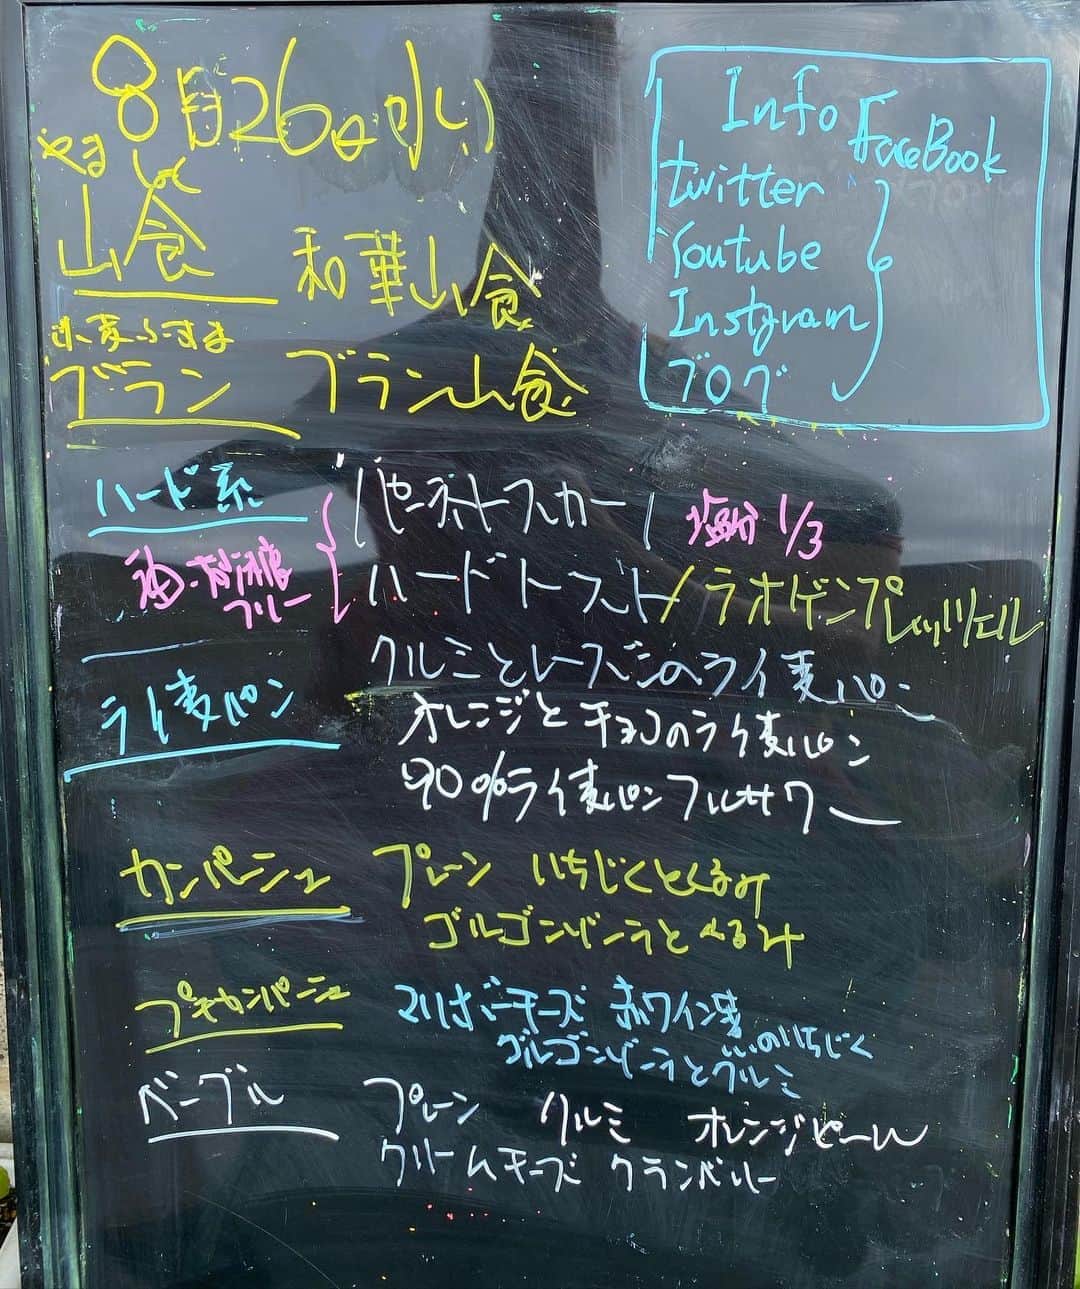 8月26日水
Info
FaceBook
twitter
Youtube
Instgram
ブログ
やま しょく
山食 和華山食
小麦ふすま
ブラン ブラン山食
ハード系 パンオトスカーノ 塩分1/3
油・砂糖
フリー
ハードトースト/ラオゲンプレッツェル
クルミとレーズンのライ麦パン
ライ麦パン
オレンジとチョコのライ麦パン
90%ライ麦パンフルサワー
カンパーニュ プレーン いちじくとくるみ
ゴルゴンゾーラとくるみ
プチカンパーニュ マリボーチーズ 赤ワイン煮のいちじく
ゴルゴンゾーラとクルミ
ベーグル プレーン クルミ オレンジピール
クリームチーズ クランベリー